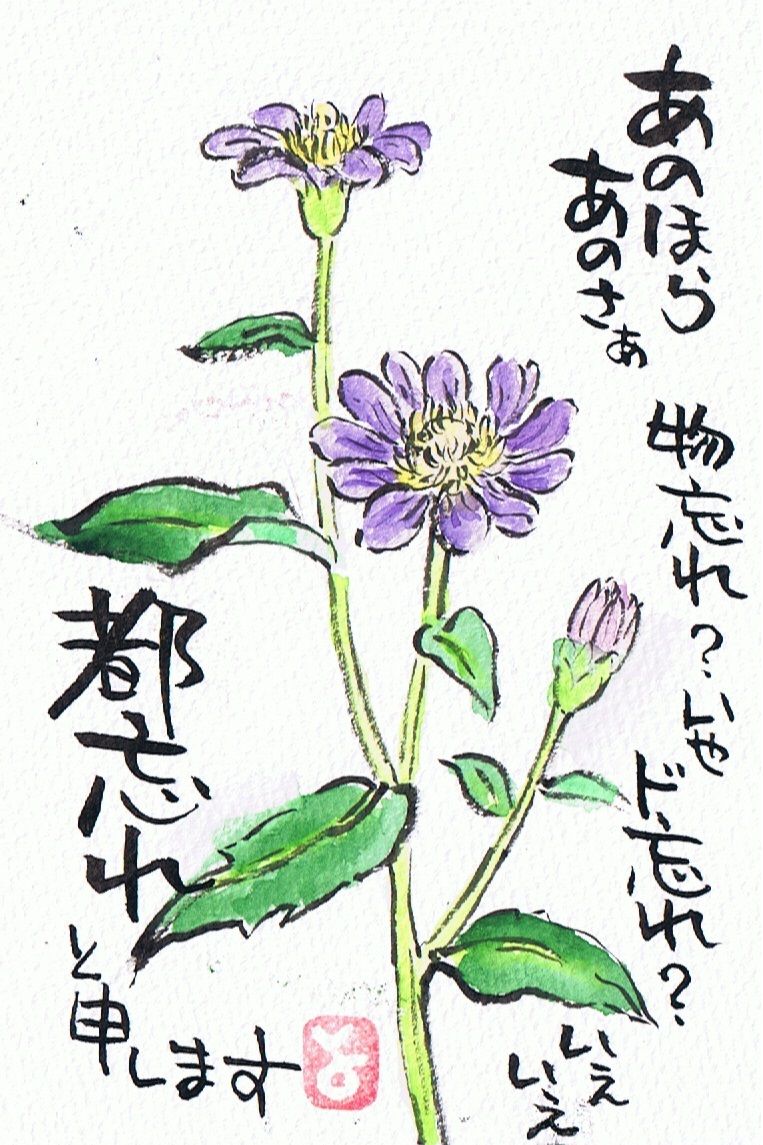 あのほら
あのさぁ
物忘れ?いや
ド忘れ?
いえ
いえ
都忘れ
と申します